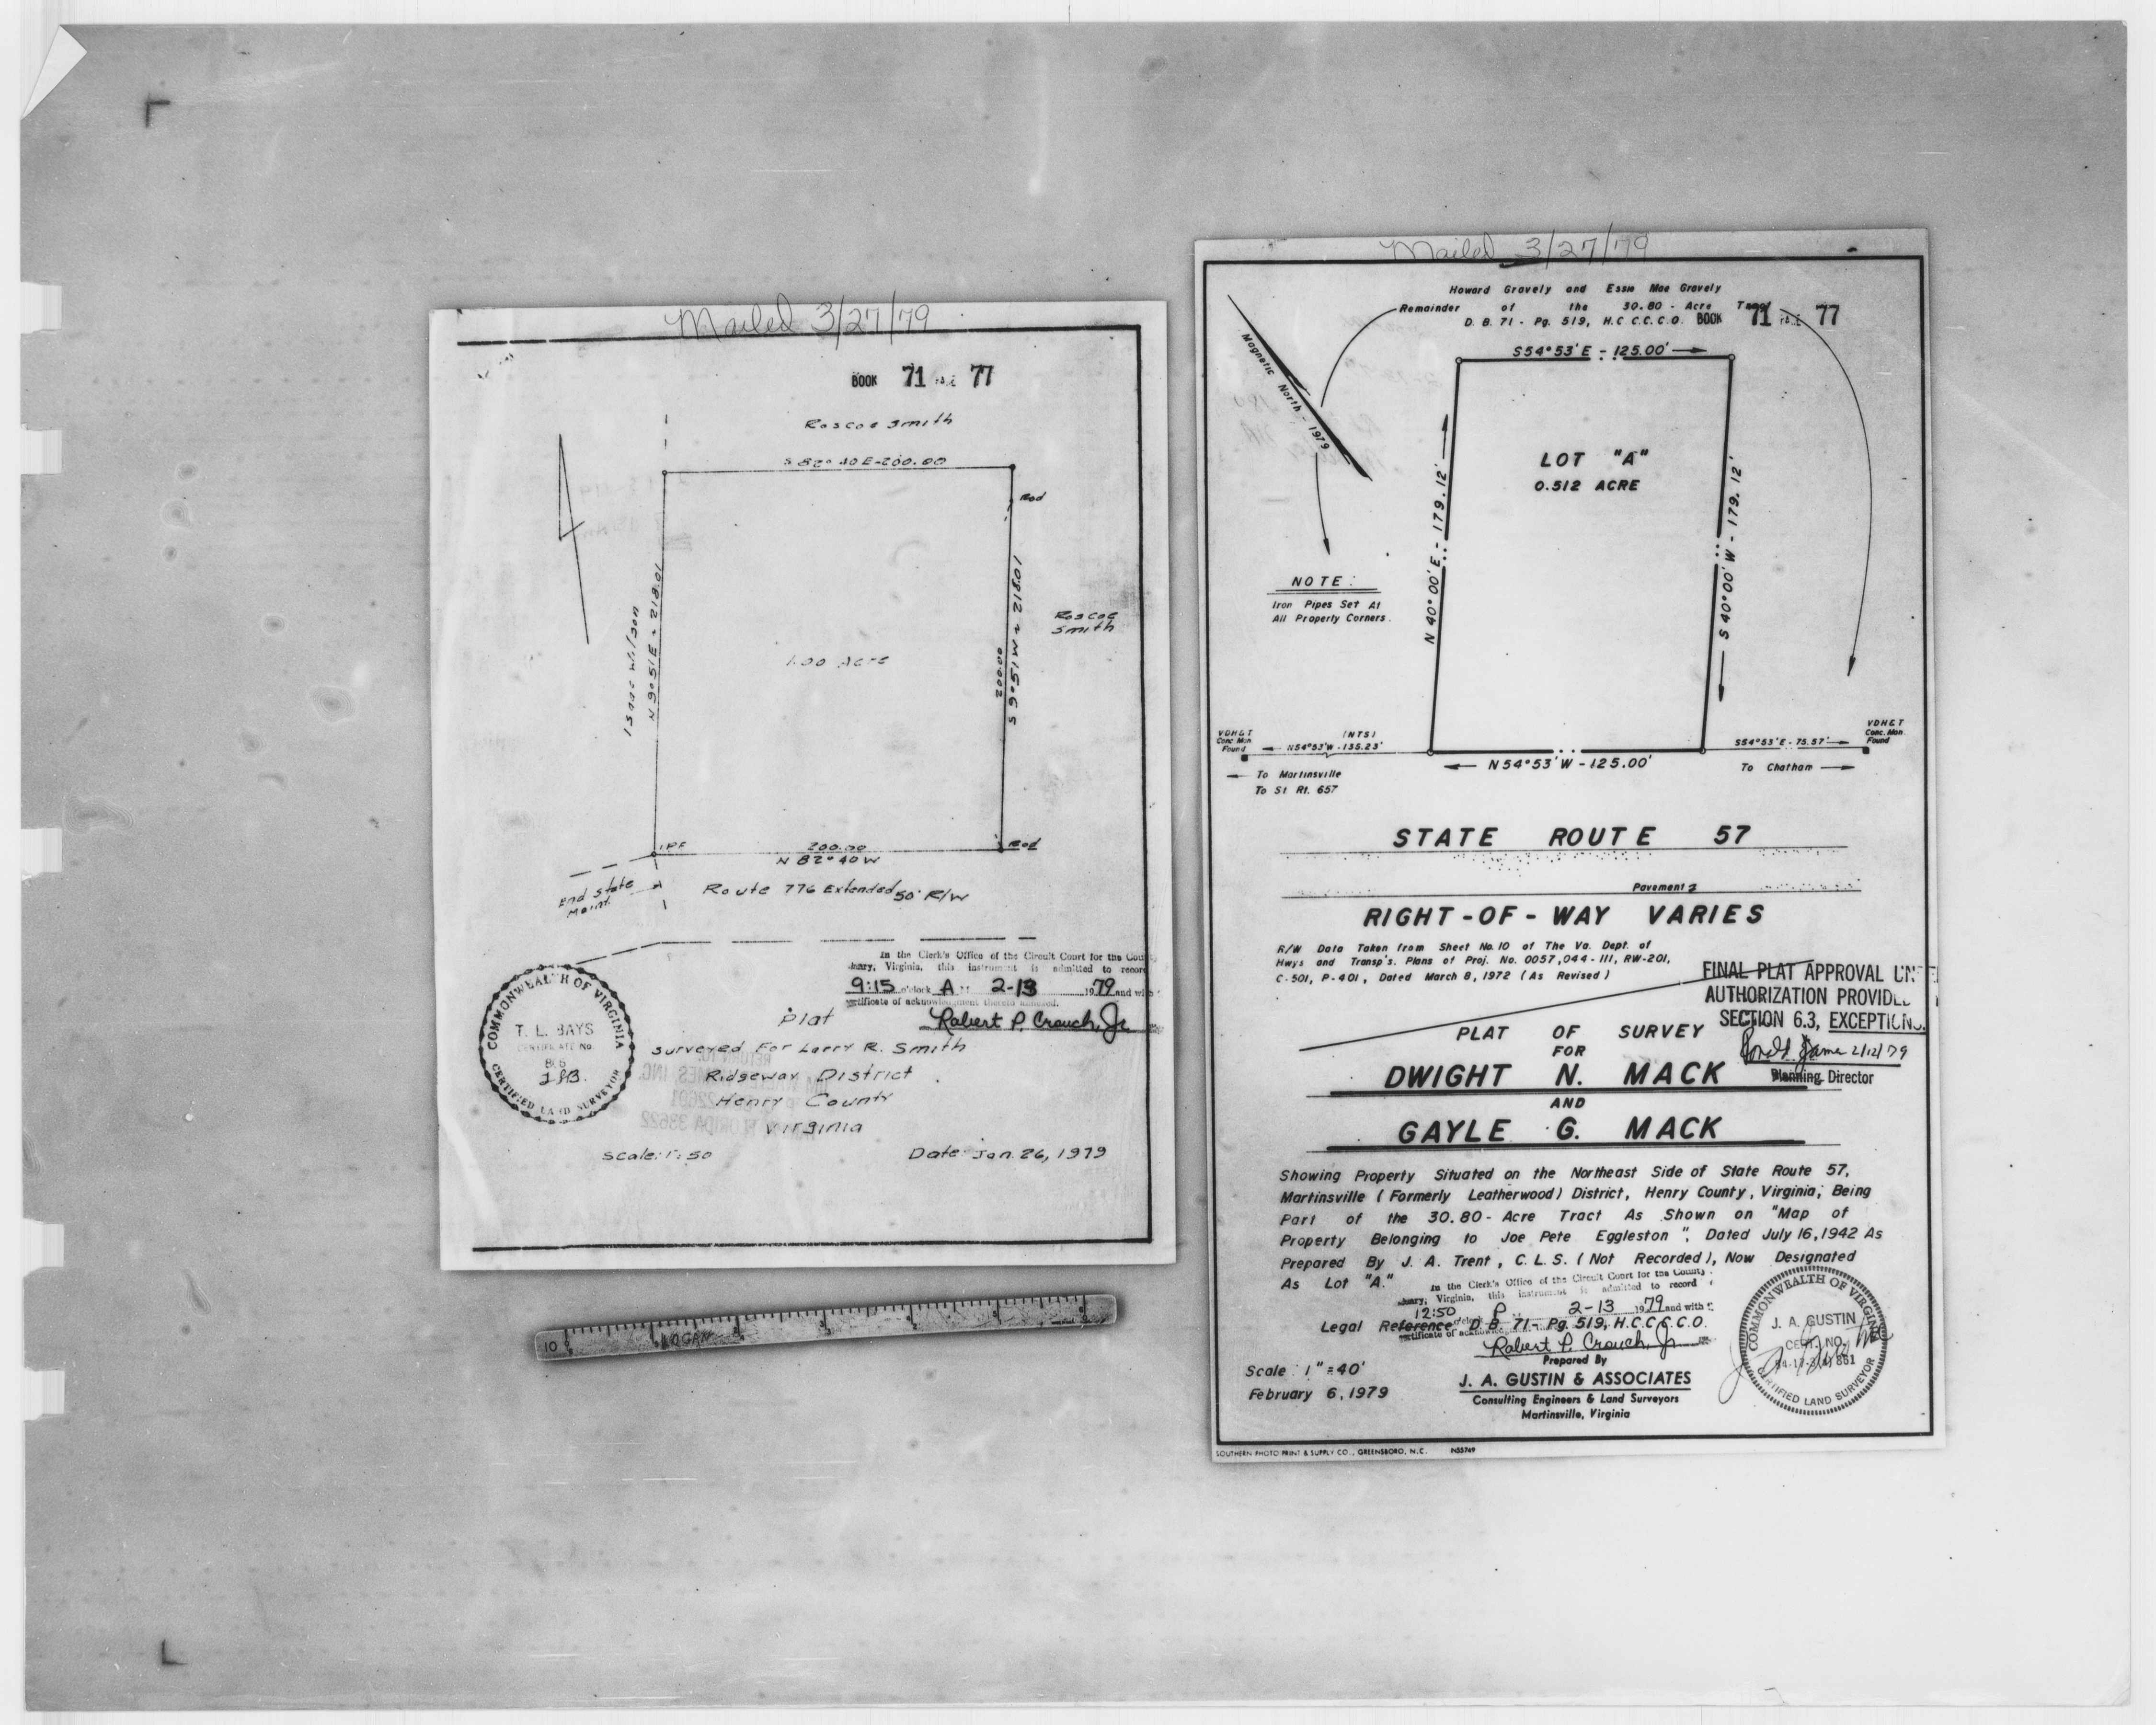 Mailed 3/27/79
BOOK 71 PAGE 77
Roscoe Smith
S 82° 40 E - 200.00
Rod
Isaac Wilson
N 9° 51 E - 218.01
1.00 Acre
200.00
S 9° 51 W - 218.01
Roscoe
Smith
IPF
200.00
N 82° 40 W
Rod
End State
Maint.
Route 776 Extended 50' R/W
In the Clerk's Office of the Circuit Court for the
Virginia, this instrument is admitted to record
9:15 o'clock A 2-13 1979 and with
certificate of acknowledgment thereto annexed.
Robert P. Crouch, Jr.
Plat
Surveyed For Larry R. Smith
Ridgeway District
Henry County
Virginia
Scale: 1": 50
Date Jan. 26, 1979
COMMONWEALTH OF VIRGINIA
T. L. BAYS
CERTIFICATE NO.
CERTIFIED LAND SURVEYOR
10 LOGAN
Mailed 3/27/79
Howard Gravely and Essie Mae Gravely
Remainder of the 30.80 - Acre Tract
D. B. 71 - Pg. 519, H.C.C.C.C.O. BOOK 71 PAGE 77
Magnetic North - 1979
S54°53'E - 125.00'
LOT "A"
0.512 ACRE
N 40°00'E - 179.12'
S 40°00'W - 179.12'
NOTE:
Iron Pipes Set At
All Property Corners.
VDH&T
Conc. Mon.
Found
(NTS)
N54°53'W - 135.23'
N54°53'W - 125.00'
S54°53'E - 75.57'
VDH&T
Conc. Mon.
Found
To Martinsville
To St. Rt. 657
To Chatham
STATE ROUTE 57
Pavement
RIGHT-OF-WAY VARIES
R/W Data Taken from Sheet No. 10 of The Va. Dept. of
Hwys and Transp's. Plans of Proj. No. 0057, 044 - 111, RW-201,
C-501, P-401, Dated March 8, 1972 (As Revised)
FINAL PLAT APPROVAL
AUTHORIZATION
SECTION 6.3, EXCEPTIONS
2/12/79
Planning Director
PLAT OF SURVEY
FOR
DWIGHT N. MACK
AND
GAYLE G. MACK
Showing Property Situated on the Northeast Side of State Route 57,
Martinsville (Formerly Leatherwood) District, Henry County, Virginia; Being
Part of the 30.80 - Acre Tract As Shown on "Map of
Property Belonging to Joe Pete Eggleston", Dated July 16, 1942 As
Prepared By J. A. Trent, C. L. S. (Not Recorded), Now Designated
As Lot "A."
In the Clerk's Office of the Circuit Court for the County
Virginia, this instrument is admitted to record
12:50 P 2-13 1979 and with
Legal Reference: D. B. 71 - Pg. 519, H.C.C.C.C.O.
certificate of
Robert P. Crouch, Jr.
Prepared By
J. A. GUSTIN & ASSOCIATES
Consulting Engineers & Land Surveyors
Martinsville, Virginia
Scale: 1" = 40'
February 6, 1979
COMMONWEALTH OF VIRGINIA
J. A. GUSTIN
CERT. NO.
CERTIFIED LAND SURVEYOR
SOUTHERN PHOTO PRINT & SUPPLY CO., GREENSBORO, N.C. N55749